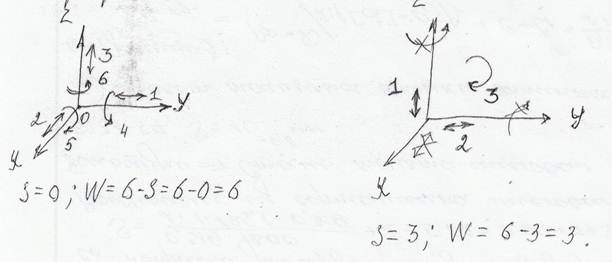 z
3
6
1
y
0
2
4
5
x
S=0; W=6-S=6-0=6
z
1
3
2
y
x
S=3; W=6-3=3.